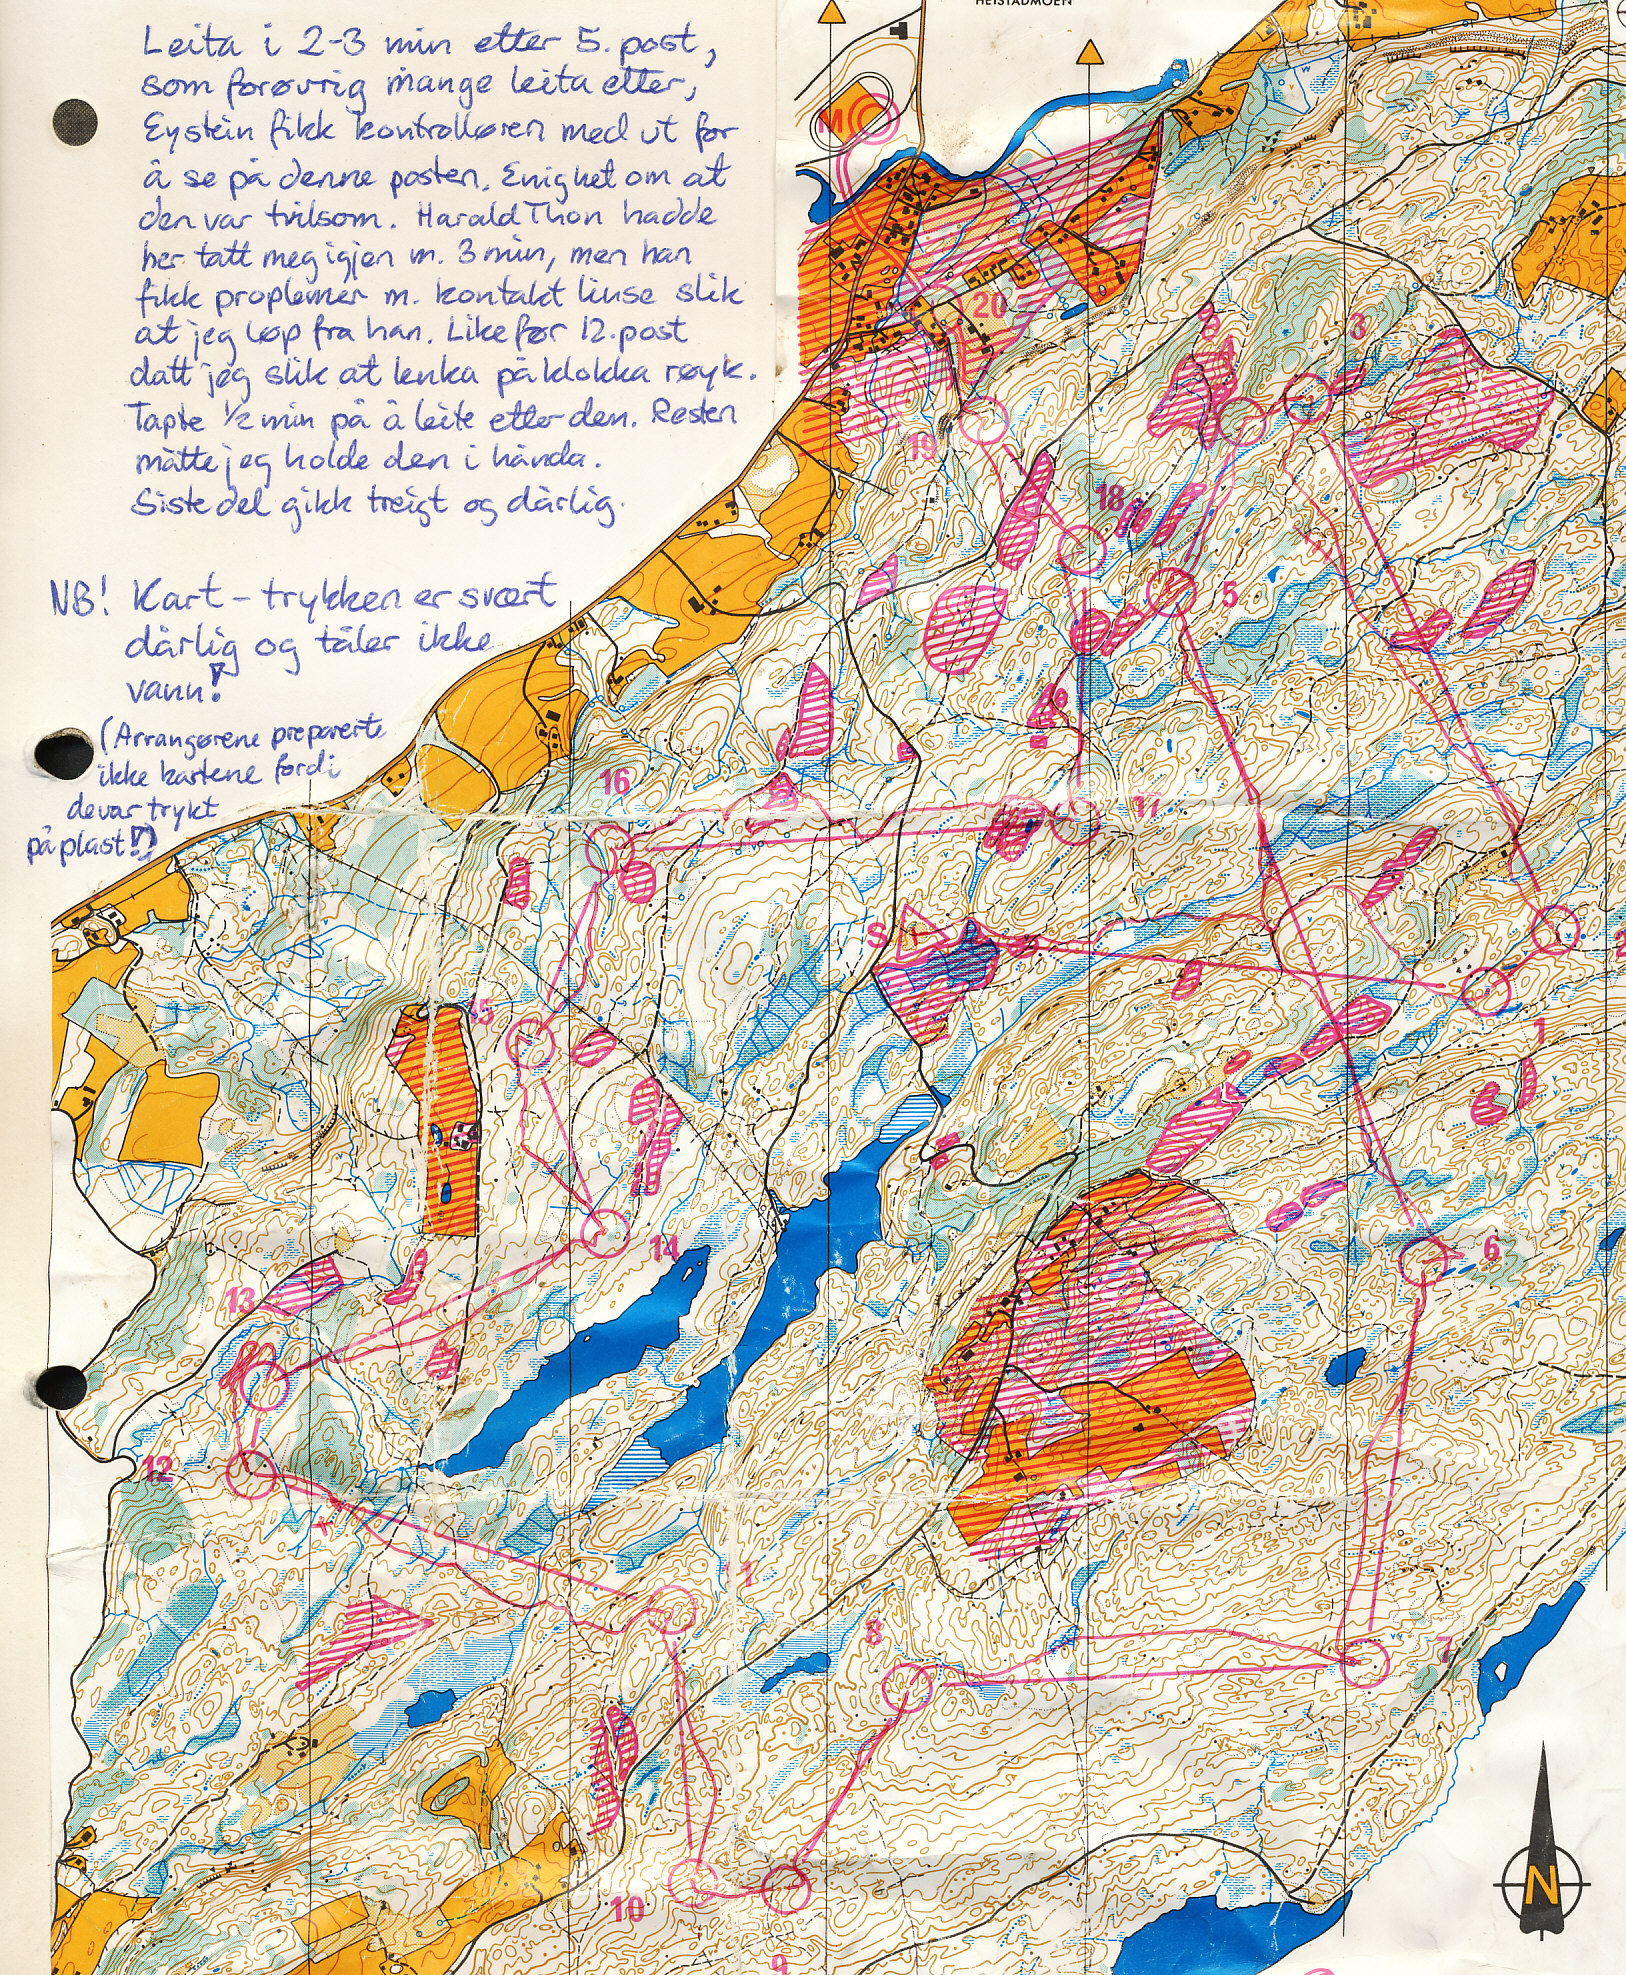 HEISTADMOEN
Leita i 2-3 min etter 5. post,
som forøvrig mange leita etter,
Eystein fikk kontrolløren med ut for
å se på denne posten. Enighet om at
den var tvilsom. Harald Thon hadde
her tatt meg igjen m. 3 min, men han
fikk proplemer m. kontakt linse slik
at jeg løp fra han. Like før 12. post
datt jeg slik at lenka på klokka røyk.
Tapte ½ min på å leite etter den. Resten
måtte jeg holde den i hånda.
Siste del gikk treigt og dårlig.
NB! Kart-trykken er svært
dårlig og tåler ikke
vann!
(Arrangørene preparerte
ikke kartene fordi
de var trykt
på plast!?)
M
20
3
19
18
5
16
17
S
2
15
1
14
6
13
12
11
8
7
10
9
N